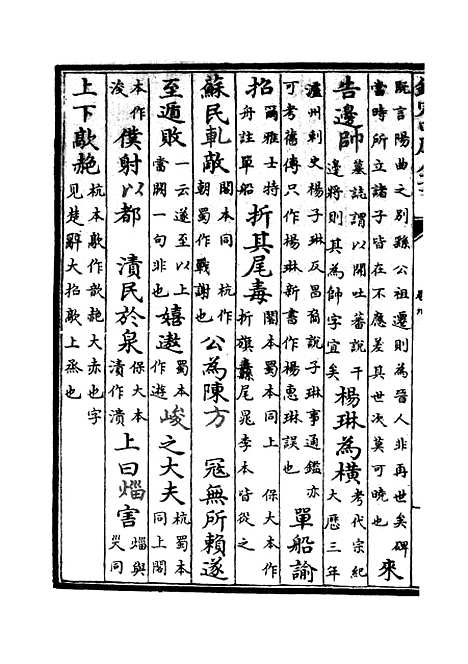 既言陽曲之別縣公祖遷則為晉人非再世矣碑
當時所立諸子皆在不應差其世次莫可曉也
來
告邊帥
墓誌謂以開吐蕃說干
邊將則其為帥字宜矣
楊琳為橫
考代宗紀
大歷三年
瀘州刺史楊子琳反昌裔說子琳事通鑑亦
可考舊傳只作楊琳新書作楊惠琳誤也
單船諭
招
爾雅士特
舟註單船
折其尾毒
閣本蜀本同上 保大本作
折旗纛尾晁李本皆從之
蘇民軋敵
閣本同 杭作
朝蜀作戰謝也
公為陳方 寇無所賴遂
至遁敗
一云遂至以上
當闕一句非也
嬉遨
蜀本
作遊
峻之大夫
杭蜀本
同上閣
本作
浚
僕射以都 漬民於泉
保大本
漬作潰
上曰害
與
災同
上下歊赩
杭本歊作歆赩大赤也字
見楚辭大招歊上蒸也